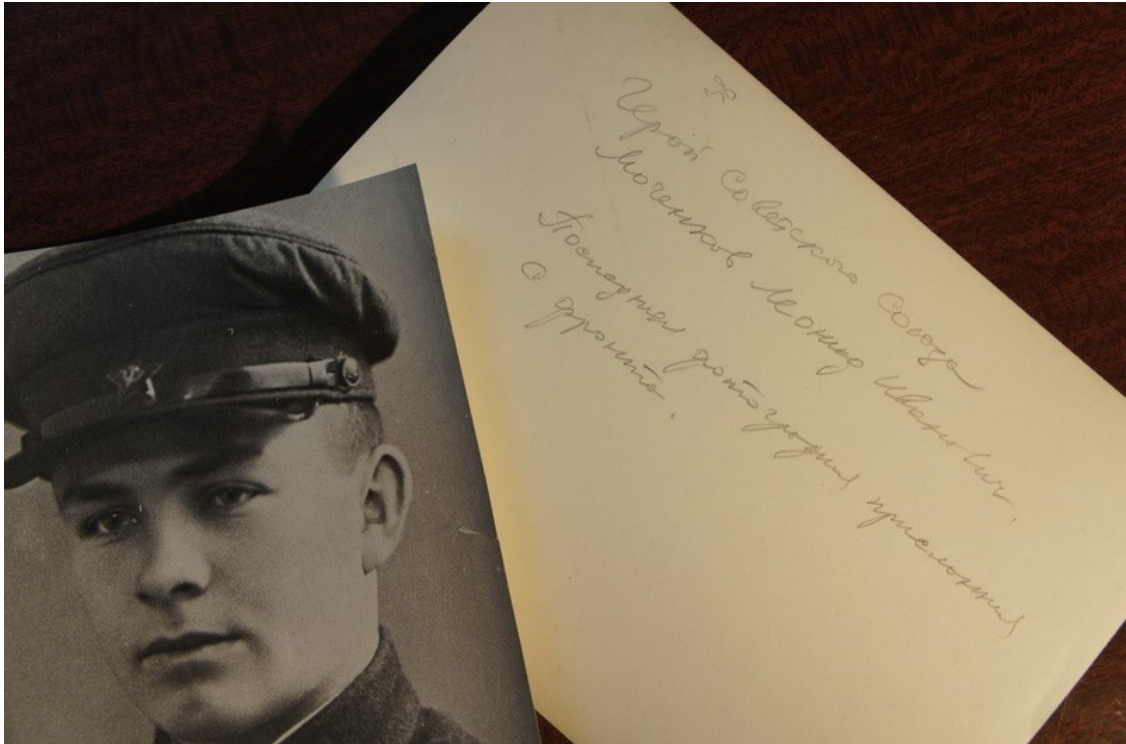 Герой Советского Союза
Моченков Леонид Иванович.
Последняя фотография присланная
с фронта.